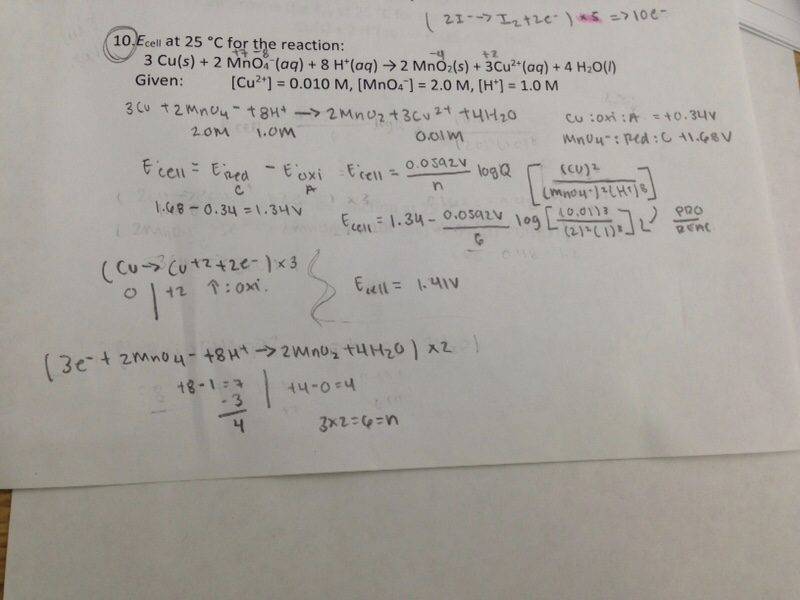 (2I⁻ -> I₂ + 2e⁻) x 5 => 10e⁻
10. Ecell at 25 °C for the reaction:
+7 -8 -4 +2
3 Cu(s) + 2 MnO₄⁻(aq) + 8 H⁺(aq) → 2 MnO₂(s) + 3Cu²⁺(aq) + 4 H₂O(l)
Given: [Cu²⁺] = 0.010 M, [MnO₄⁻] = 2.0 M, [H⁺] = 1.0 M
3Cu + 2MnO₄⁻ + 8H⁺ → 2MnO₂ + 3Cu²⁺ + 4H₂O
2.0M 1.0M 0.01M
Cu : oxi : A = +0.34V
MnO₄⁻ : Red : C +1.68V
E°cell = E°Red - E°oxi
C A
E°cell = 0.0592V/n log Q [(Cu)²/(MnO₄⁻)²(H⁺)⁸]
1.68 - 0.34 = 1.34V
Ecell = 1.34 - 0.0592V/6 log [(0.01)³/(2)²(1)⁸] PRO/REAC
(Cu → Cu+2 + 2e⁻) x 3
0 | +2 ↑: oxi.
Ecell = 1.41V
(3e⁻ + 2MnO₄⁻ + 8H⁺ → 2MnO₂ + 4H₂O) x 2
+8 - 1 = 7 | +4 - 0 = 4
- 3
4
3x2 = 6 = n